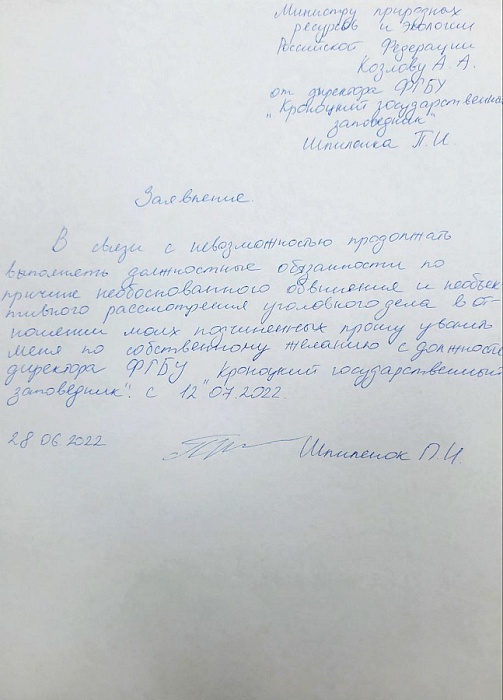 Министру природных
ресурсов и экологии
Российской Федерации
Козлову А. А.
от директора ФГБУ
"Кроноцкий государственный
заповедник"
Шпиленка П.И
Заявление.
В связи с невозможностью продолжать
выполнять должностные обязанности по
причине необоснованного обвинения и необъек
тивного рассмотрения уголовного дела в от
ношении моих подчиненных прошу уволить
меня по собственному желанию с должности
директора ФГБУ "Кроноцкий государственный
заповедник". с 12 07 2022.
28 06.2022 Шпиленок П.И.